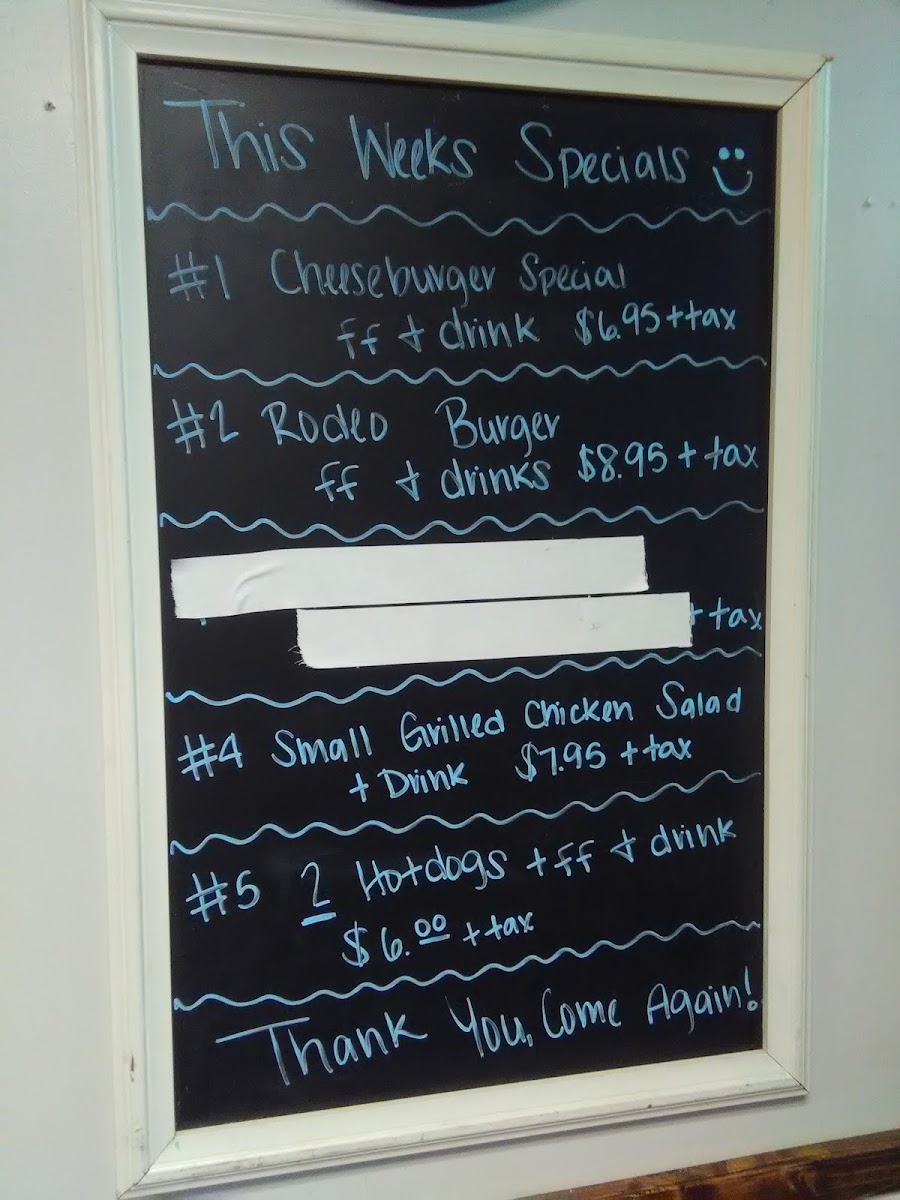 This Weeks Specials
#1 Cheeseburger Special
ff + drink $6.95 + tax
#2 Rodeo Burger
ff + drinks $8.95 + tax
+ tax
#4 Small Grilled Chicken Salad
+ Drink $7.95 + tax
#5 2 Hotdogs + ff + drink
$6.00 + tax
Thank You, Come Again!